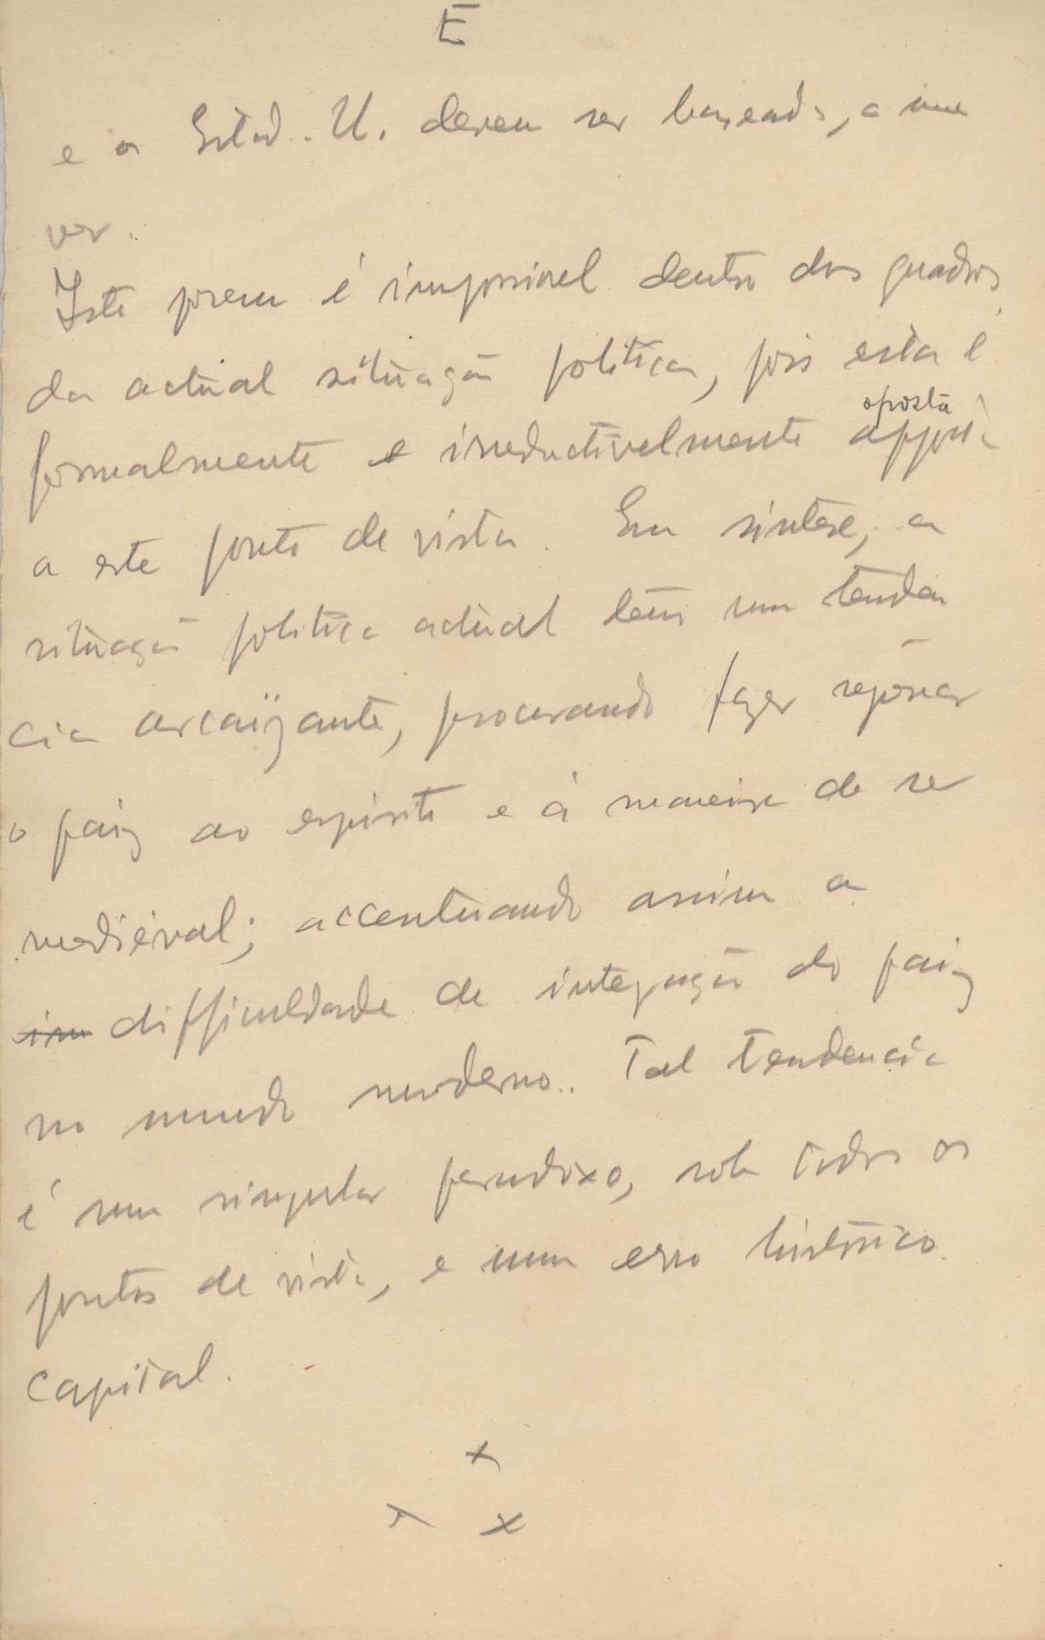 E
e os Estad. U. devem ser baseados, a meu
ver.
Isto porem é impossivel dentro dos quadros
da actual situação politica, pois esta é
formalmente e irreductivelmente opposta oposta
a este ponto de vista. Em sintese, a
situação politica actual tem uma tenden
cia arcaïzante, procurando fazer
o paiz ao espirito e á maneira de ser
medieval; accentuando assim a
im difficuldade de integração do paiz
no mundo moderno. Tal tendencia
é um singular paradoxo, sob todos os
pontos de vista, e um erro histórico
capital.
x
x x